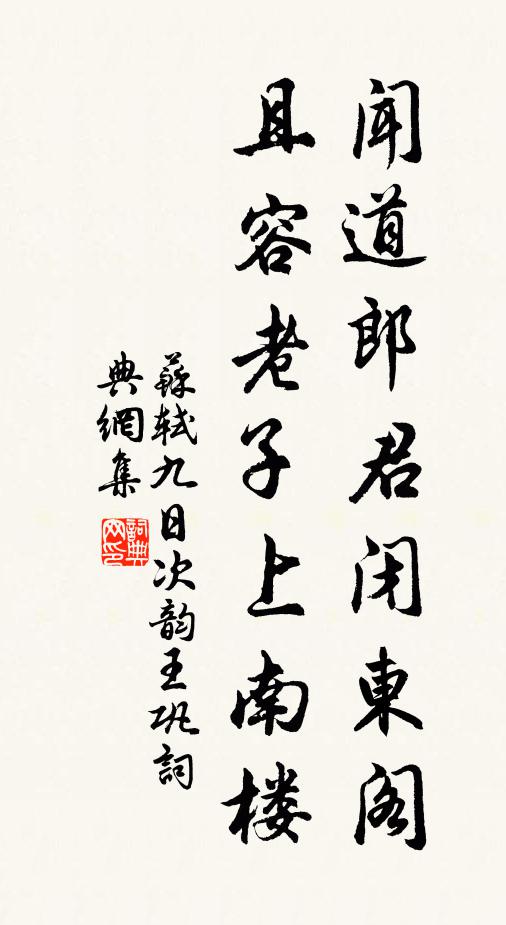 闻道郎君闭東阁
且容老子上南楼
蘇軾九日次韵王巩詞
典網集
詞典网印